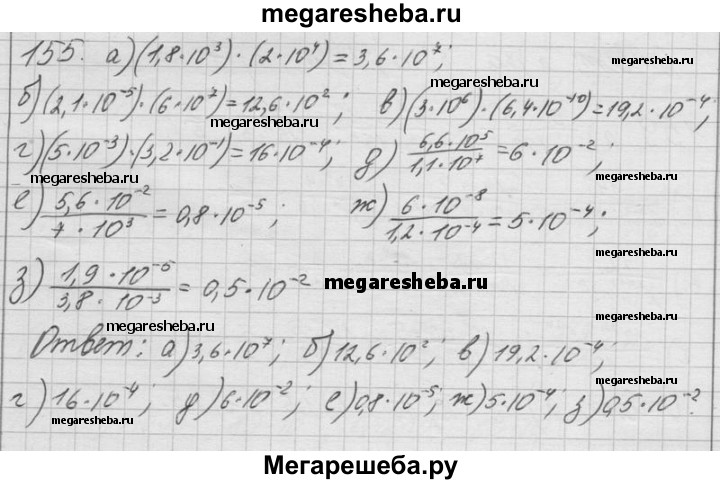 megaresheba.ru
155. а) (1,8·10³)·(2·10⁴) = 3,6·10⁷;
megaresheba.ru
megaresheba.ru
б) (2,1·10⁻⁵)·(6·10⁷) = 12,6·10²; в) (3·10⁶)·(6,4·10⁻¹⁰) = 19,2·10⁻⁴;
megaresheba.ru
megaresheba.ru
г) (5·10⁻³)·(3,2·10⁻¹) = 16·10⁻⁴; д) 6,6·10⁵/1,1·10⁷ = 6·10⁻²;
megaresheba.ru
megaresheba.ru
е) 5,6·10⁻²/7·10³ = 0,8·10⁻⁵; ж) 6·10⁻⁸/1,2·10⁻⁴ = 5·10⁻⁴;
megaresheba.ru
з) 1,9·10⁻⁵/3,8·10⁻³ = 0,5·10⁻²
megaresheba.ru
megaresheba.ru
Ответ: а) 3,6·10⁷; б) 12,6·10²; в) 19,2·10⁻⁴;
megaresheba.ru
megaresheba.ru
г) 16·10⁻⁴; д) 6·10⁻²; е) 0,8·10⁻⁵; ж) 5·10⁻⁴; з) 0,5·10⁻².
Мегарешеба.ру